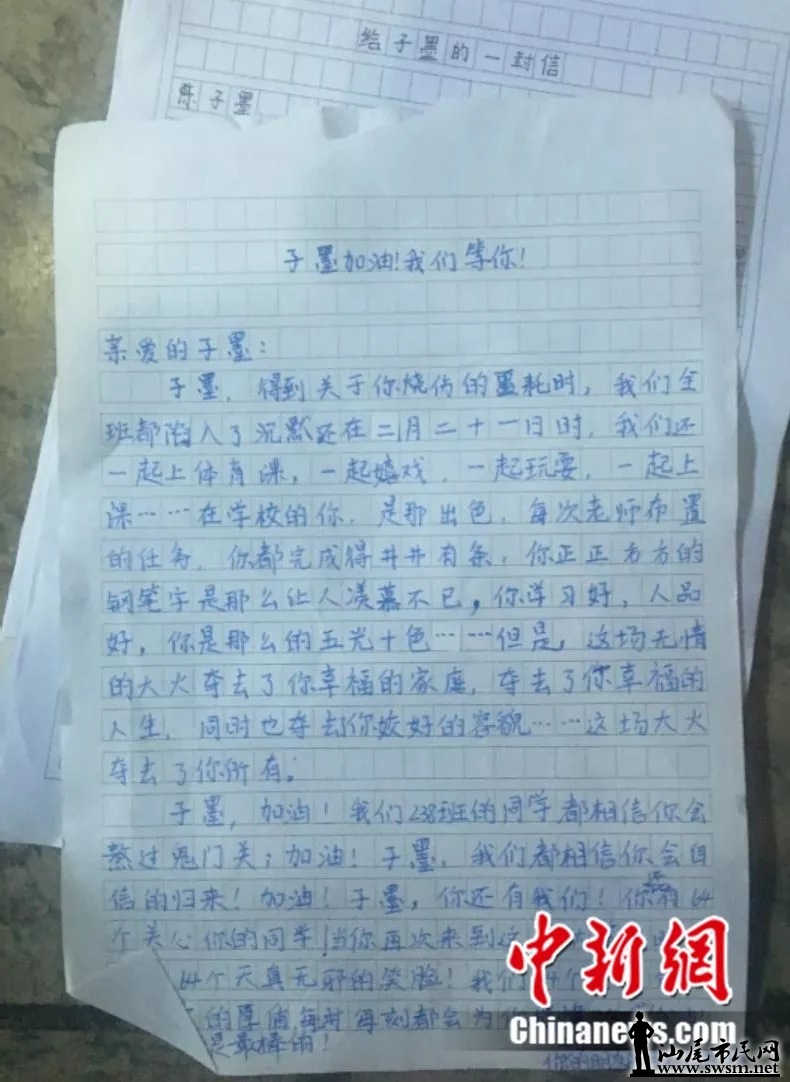 给子墨的一封信
子墨
子墨加油!我们等你!
亲爱的子墨:
子墨,得到关于你烧伤的噩耗时,我们全
班都陷入了沉默还在二月二十一日时,我们还
一起上体育课,一起嬉戏,一起玩耍,一起上
课……在学校的你,是那出色,每次老师布置
的任务,你都完成得井井有条,你正正方方的
钢笔字是那么让人羡慕不已,你学习好,人品
好,你是那么的五光十色……但是,这场无情
的大火夺去了你幸福的家庭,夺去了你幸福的
人生,同时也夺去你姣好的容貌……这场大火
夺去了你所有。
子墨,加油!我们238班的同学都相信你会
熬过鬼门关;加油!子墨,我们都相信你会自
信的归来!加油!子墨,你还有我们!你还有64
个关心你的同学!当你再次来到这
64个天真无邪的笑脸!我们
的 每时每刻都会为你
是最棒的!
你的
中新網
Chinanews.com
汕尾市民网
www.swsm.net